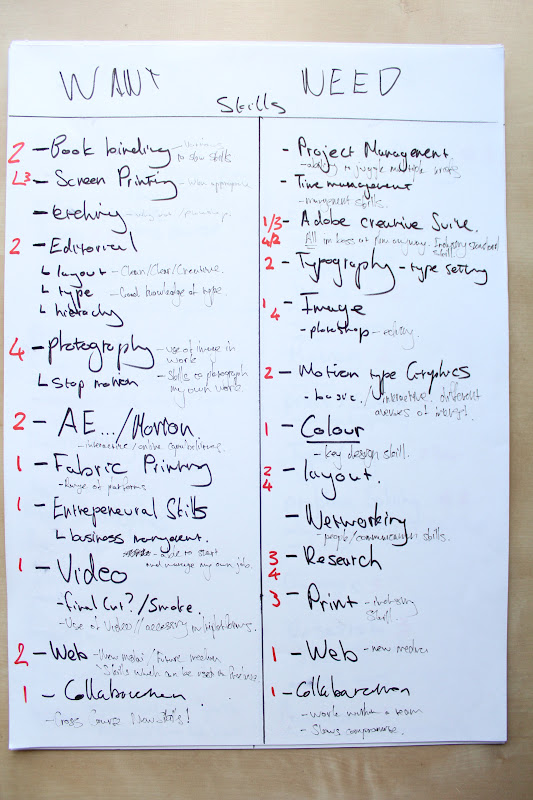 WANT
NEED
Skills
2 - Book binding -
to show skills
L3 - Screen Printing - when appropriate
- Etching -
2 - Editorial
↳ layout - Clean/Clear/Creative.
↳ type - Good knowledge of type.
↳ hierachy
4 - photography - use of image in
work
↳ Stop motion - Skills to photograph
my own work.
2 - AE.../Motion
- interactive/online capabilities
1 - Fabric Printing
- Range of platforms
1 - Entrepeneural Skills
↳ business management.
- able to start
and manage my own job.
1 - Video
- Final Cut?/Smoke.
- Use of Video/accessory multiplatforms.
2 - Web - New media/future median
Skills which can be used in
1 - Collaboration
- Cross Course New Skills!
- Project Management
- ability to juggle multiple briefs
- Time management
- management skills.
1/3 - Adobe Creative Suite.
4/2 All im basic at firm anyway. Industry standard
skill.
2 - Typography - type setting
1 4 - Image
- photoshop - editing
2 - Motion type Graphics
- basic. / interactive. different
avenues of interest!
1 - Colour
- key design skill.
2 4 - layout.
- Networking
- people/communication skills.
3 4 - Research
3 - Print - industry
skill.
1 - Web - new media
1 - Collabaration
- Work within a team
- Shows compromise.